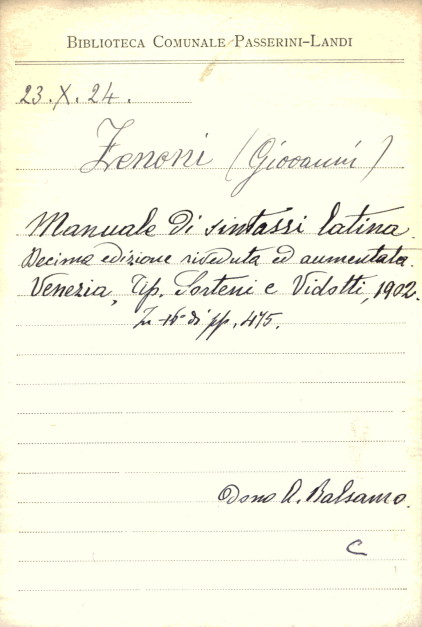 BIBLIOTECA COMUNALE PASSERINI-LANDI
23.X.24.
Zenoni (Giovanni)
Manuale di sintassi latina.
Decima edizione riveduta ed aumentata.
Venezia, Tip. Sorteni e Vidotti, 1902.
In di pp. 475.
Dono A. Balsamo.
C